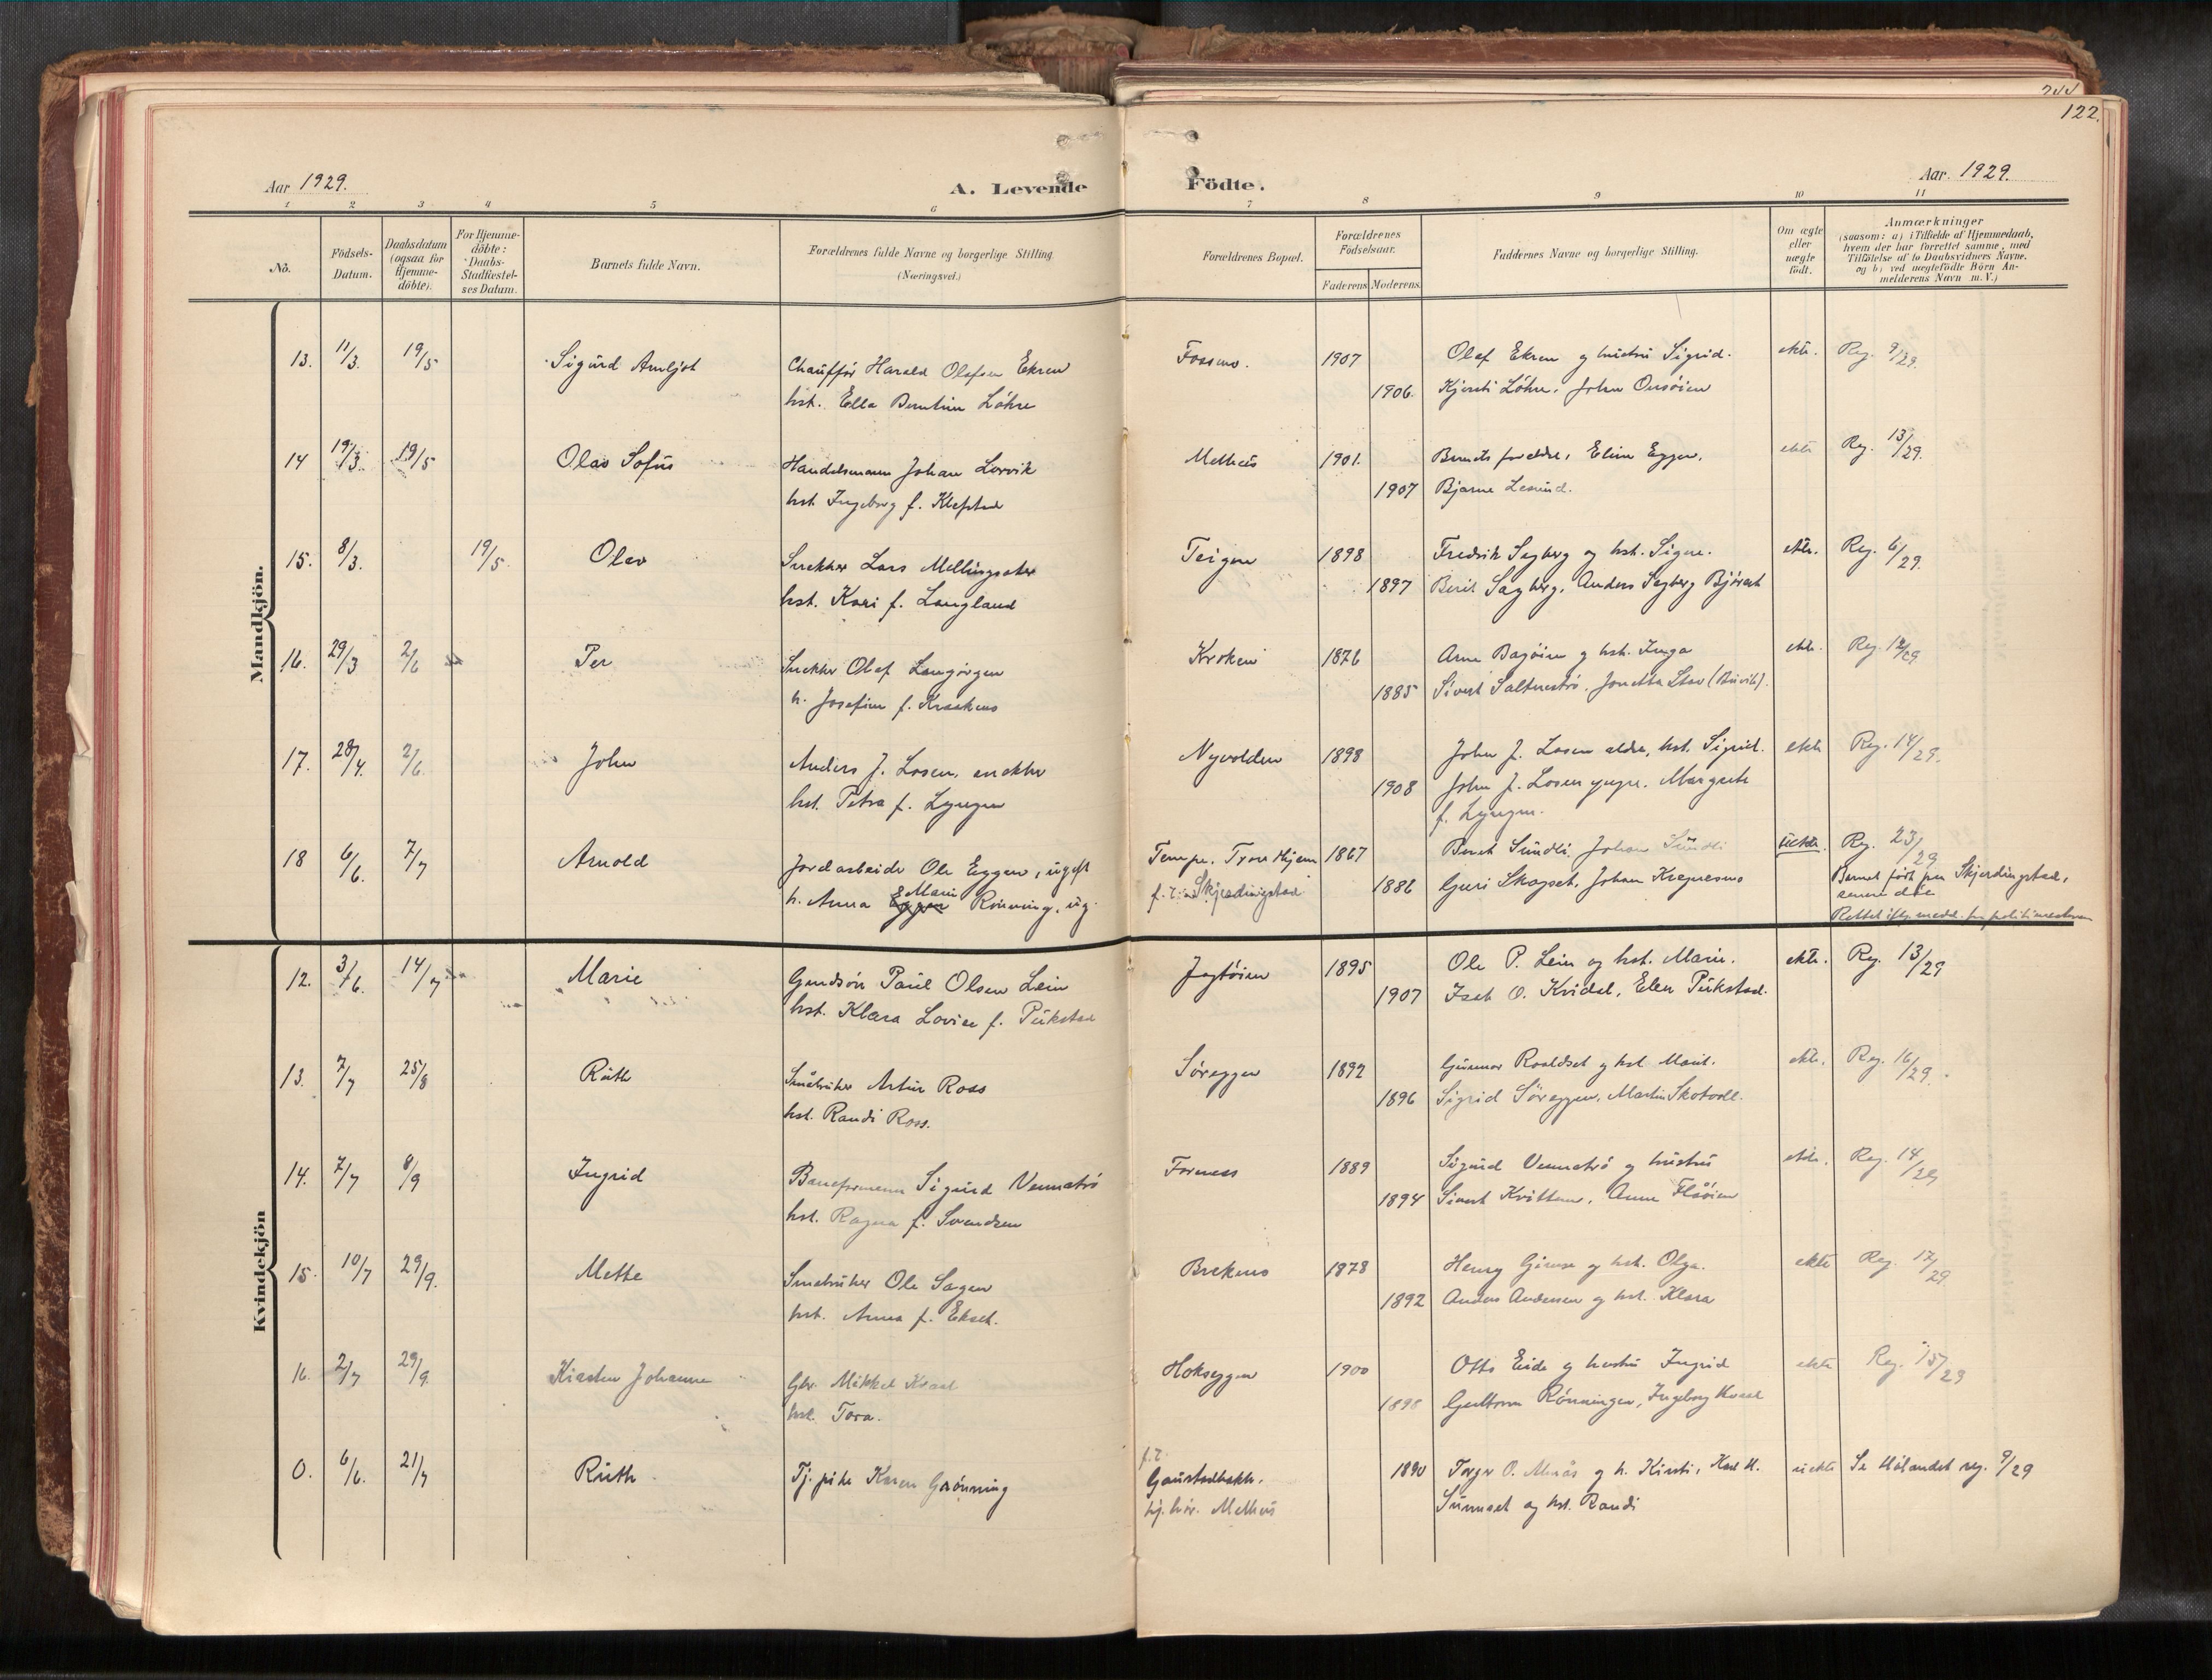 122.
Aar 1929.
A. Levende Födte.
Aar 1929.
1 2 3 4 5 6 7 8 9 10 11
No.
Födsels-
Datum.
Daabsdatum
(ogsaa for
Hjemme-
döbte).
For Hjemme-
döbte:
Daabs-
Stadfæstel-
ses Datum.
Barnets fulde Navn.
Forældrenes fulde Navne og borgerlige Stilling.
(Næringsvei.)
Forældrenes Bopæl.
Forældrenes
Födselsaar.
Faderens Moderens
Faddernes Navne og borgerlige Stilling.
Om ægte
eller
uægte
födt.
Anmærkninger
(saasom: a) i Tilfælde af Hjemmedaab,
hvem der har forrettet samme, med
Tilföielse af to Daabsvidners Navne.
og b) ved uægtefödte Börn An-
melderens Navn m. V.)
Mandkjön.
13. 11/3. 19/5 Sigurd Arnljot Chaufför Harald Olafsen Ekren Fossmo. 1907 Olaf Ekren og hustru Sigrid. ekte. Reg. 9/29.
hst. Ella Berntine Löhre 1906. Kjersti Löhre, John Onsöien
14 19/3. 19/5 Olav Sofus Handelsmann Johan Lervik Melhus 1901. Barnets foreldre, Eline Eggen, ekte Reg. 13/29.
hst. Ingeborg f. Klefstad 1907 Bjarne Lesund.
15. 8/3. 19/5. Olav Snekker Lars Mellingsæter Teigen 1898 Fredrik Sagberg og hst. Signe. ekte. Reg. 6/29.
hst. Kari f. Langland 1897 Berit Sagberg, Anders Sagberg
16. 29/3 2/6 Per Snekker Olaf Langörgen Kroken 1876 Arne Bagöien og hst. Inga ekte. Reg. 12/29
h. Josefine f. Kraakmo 1885 Sivert Saltneströ, Jonetta Stav (Buvik).
17. 28/4. 2/6. John Anders J. Losen, snekker Nyvolden 1898 John J. Losen eldre, hst. Sigrid. ekte Reg. 14/29.
hst. Petra f. Lyngen 1908 John J. Losen yngre. Margrete
f. Lyngen.
18 6/6. 7/7 Arnold Jordarbeider Ole Eggen, ugift Tempe. Trondhjem 1867 Berit Sundli, Johan Sundli uekte. Reg. 23/29
h. Anna Marie Rönning, ug. f. i Skjerdingstad 1886 Guri Skogset, Johan Kregnesmo Barnet födt paa Skjerdingstad,
samme döe
Rettet iflg. medd. fra politimesteren
Kvindekjön
12. 3/6. 14/7 Marie Gaardsön Paul Olsen Lein Jagtöien 1895 Ole P. Lein og hst. Marie. ekte. Reg. 13/29
hst. Klara Lovise f. Pukstad 1907 Isak O. Kvidal, Elen Pukstad.
13. 7/7 25/8 Ruth Småbruker Artur Ross Söreggen 1892 Gunnar Roaldset og hst. Marit. ekte. Reg. 16/29.
hst. Randi Ross. 1896 Sigrid Söreggen, Martin Skotvoll.
14. 7/7 8/9 Ingrid Baneformann Sigurd Vennatrö Forness 1889 Sigurd Vennatrö og hustru ekte. Reg. 14/29
hst. Ragna f. Svendsen 1894 Sivert Kvittem, Anne Flåöien
15. 10/7 29/9. Mette Småbruker Ole Sagen Brekmo 1878 Henry Gimse og hst. Olga. ekte Reg. 17/29.
hst. Anna f. Ekset. 1892 Anders Andersen og hst. Klara
16. 2/7 29/9. Kirsten Johanne Gbr. Mikkel Kvaal Hokseggen 1900 Otto Eide og hustru Ingrid ekte Reg. 15/29
hst. Tora. 1898 Guttorm Rönningen, Ingeborg Kvaal
0. 6/6. 21/7 Ruth Tj. pike Karen Grönning f. i Gaustadbakk. 1890 Torger O. Mosås og h. Kirsti, Karl M. uekte Se Hölandet reg. 9/29
hj. hör. Melhus Sunnset og hst. Randi